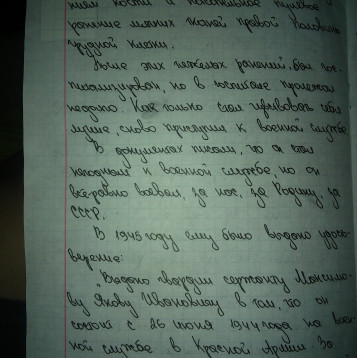 нием кости и касательное пулевое
ранение мягких тканей правой половины
грудной клетки.
После этих тяжелых ранений, был гос-
питализирован, но в госпитале пролежал
недолго. Как только стал чувствовать себя
лучше, снова приступил к военной службе
В документах писали, что он стал
негодным к военной службе, но он
всё равно воевал, за нас, за Родину, за
СССР.
В 1945 году ему было выдано удосто-
верение:
"Выдано гвардии сержанту Максимо-
ву Якову Ивановичу в том, что он
состоял с 26 июня 1944 года на воен-
ной службе в Красной Армии. За